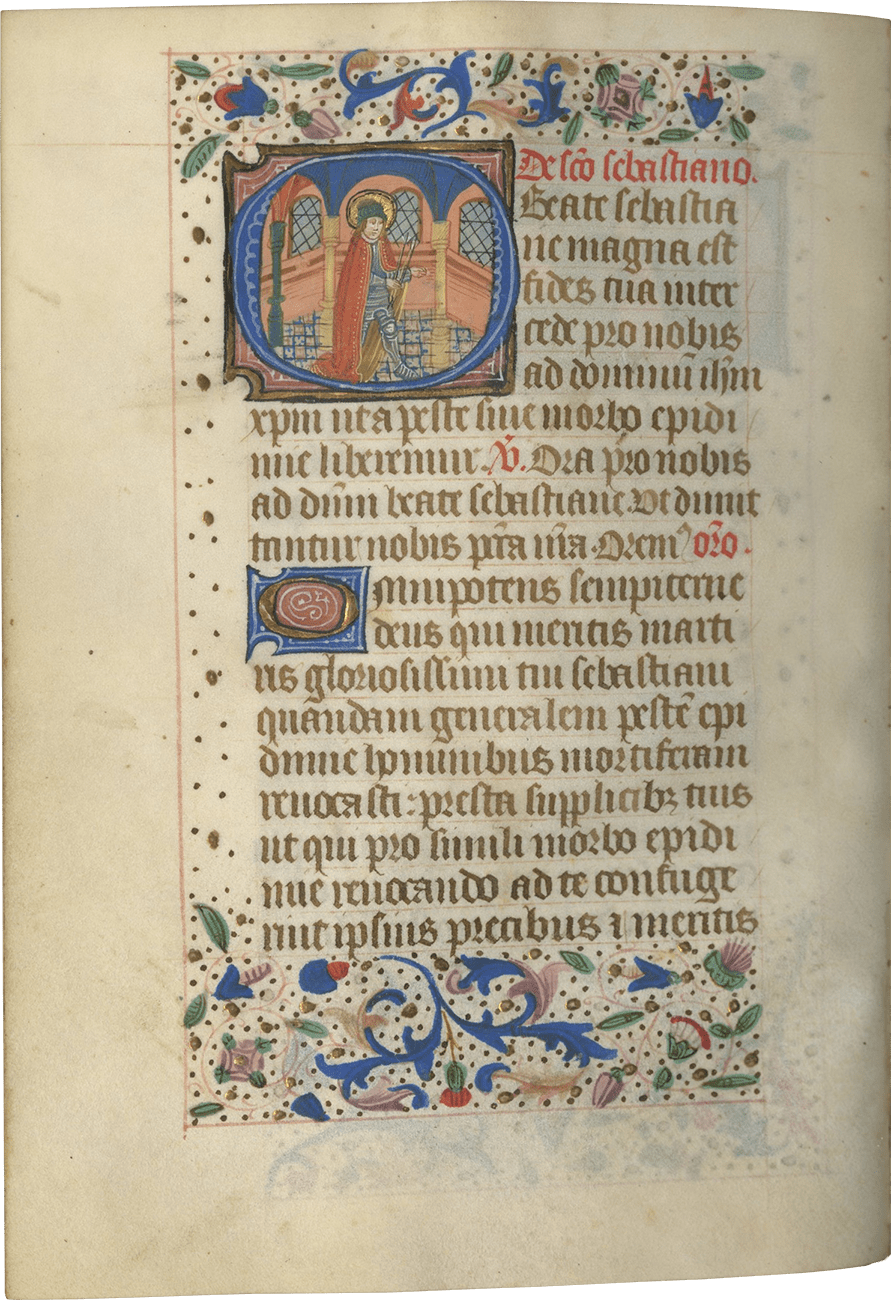 De sc̄o sebastiano.
O Beate sebastia
ne magna est
fides tua inter
cede pro nobis
ad dominū ihm̄
xpm ut a peste siue morbo epidi
mie liberemur. V̄. Ora pro nobis
ad dn̄m beate sebastiane. Vt dimit
tantur nobis pct̄a nr̄a. Orem⁹ or̄o.
Omnipotens sempiterne
deus qui meritis marti
ris gloriosissimi tui sebastiani
quandam generalem pestē epi
dimie hominibus mortiferam
reuocasti: presta supplicibꝫ tuis
ut qui pro simili morbo epidi
mie reuocando ad te confuge
rint ipsius precibus ⁊ meritis